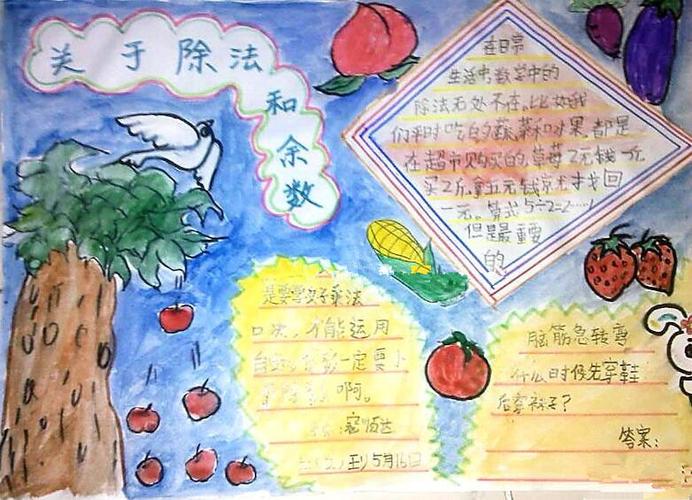 关于除法
和余数
在日常
生活中数学中的
除法无处不在,比如我
们平时吃的蔬菜和水果,都是
在超市购买的,草莓2元钱一斤
买2斤,拿五元钱
一元。算式5÷2=2……1
但是最重要
的
是要学好乘法
口诀,才能运用
一定要
啊。
到5月16日
脑筋急转弯
什么时候先穿鞋
后穿袜子?
答案: